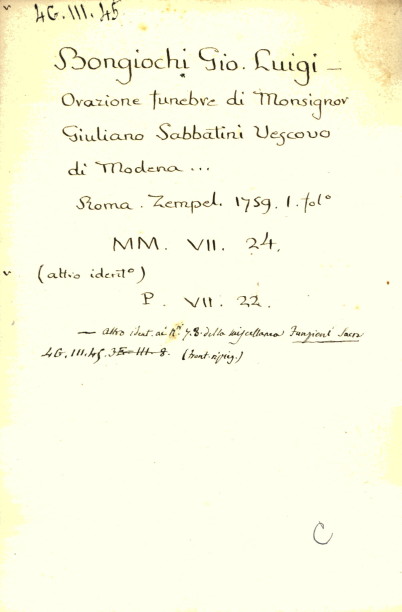 4G. III. 45
Bongiochi Gio. Luigi –
Orazione funebre di Monsignor
Giuliano Sabbatini Vescovo
di Modena ...
Roma. Zempel. 1759. 1. fol°
MM. VII. 24.
(altro ident°)
P. VII. 22.
— altro ident. ai n.ⁱ 7. 8. della miscellanea Funzioni Sacre
4G. III. 45. 3E III 8. (front. ripieg.)
C